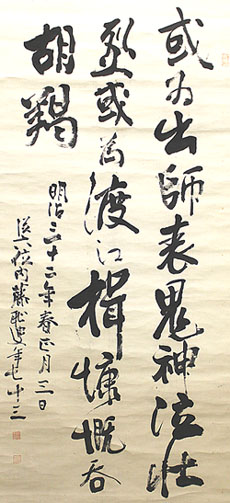 或為出師表鬼神泣壮
烈或為渡江楫慷慨呑
胡羯
明治三十二年春正月三日
従六位内藤耻叟年七十三